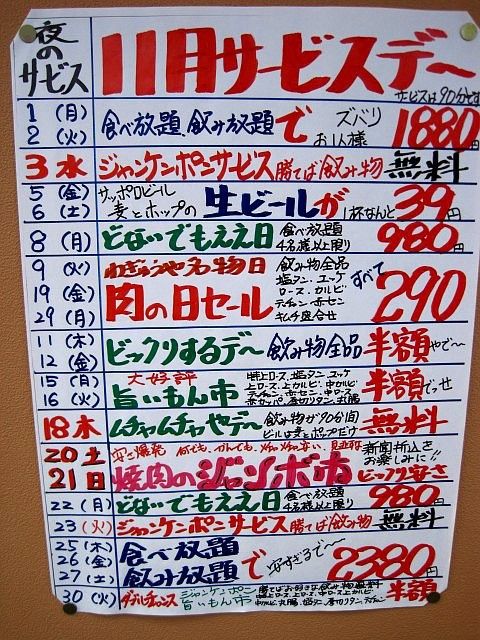 夜のサービス
11月サービスデ〜
サービスは90分です
1(月)
2(火)
食べ放題、飲み放題で
ズバリ
お1人様
1880円
3水
ジャンケンポンサービス 勝てば飲み物 無料
5(金)
6(土)
サッポロビール
麦とホップの
生ビールが
1杯なんと
39円
8(月)
どないでもええ日
食べ放題
4名様以上限り
980円
9(火)
19(金)
29(月)
わぎゅうや名物日
肉の日セール
飲み物全品
塩タン、ユッケ
ロース、カルビ
テッチャン、赤セン
キムチ盛合せ
すべて
290
11(木)
12(金)
ビックリするデ〜
飲み物全品
半額やで〜
15(月)
16(火)
大好評
旨いもん市
特上ロース、塩タン、ユッケ
上ロース、上カルビ、中カルビ
半額でっせ
18木
ムチャムチャやデ〜
飲み物が90分間
ビールは麦とホップだけ
無料
20土
21日
焼肉のジャンボ市
新聞折込を
お楽しみに!!
ビックリ安さ
22(月)
どないでもええ日
食べ放題
4名様以上限り
980円
23(火)
ジャンケンポンサービス 勝てば飲み物 無料
25(木)
26(金)
27(土)
食べ放題
飲み放題
で
安すぎるで〜
2380円
30(火)
ダブルチャンス
ジャンケンポン
旨いもん市
半額